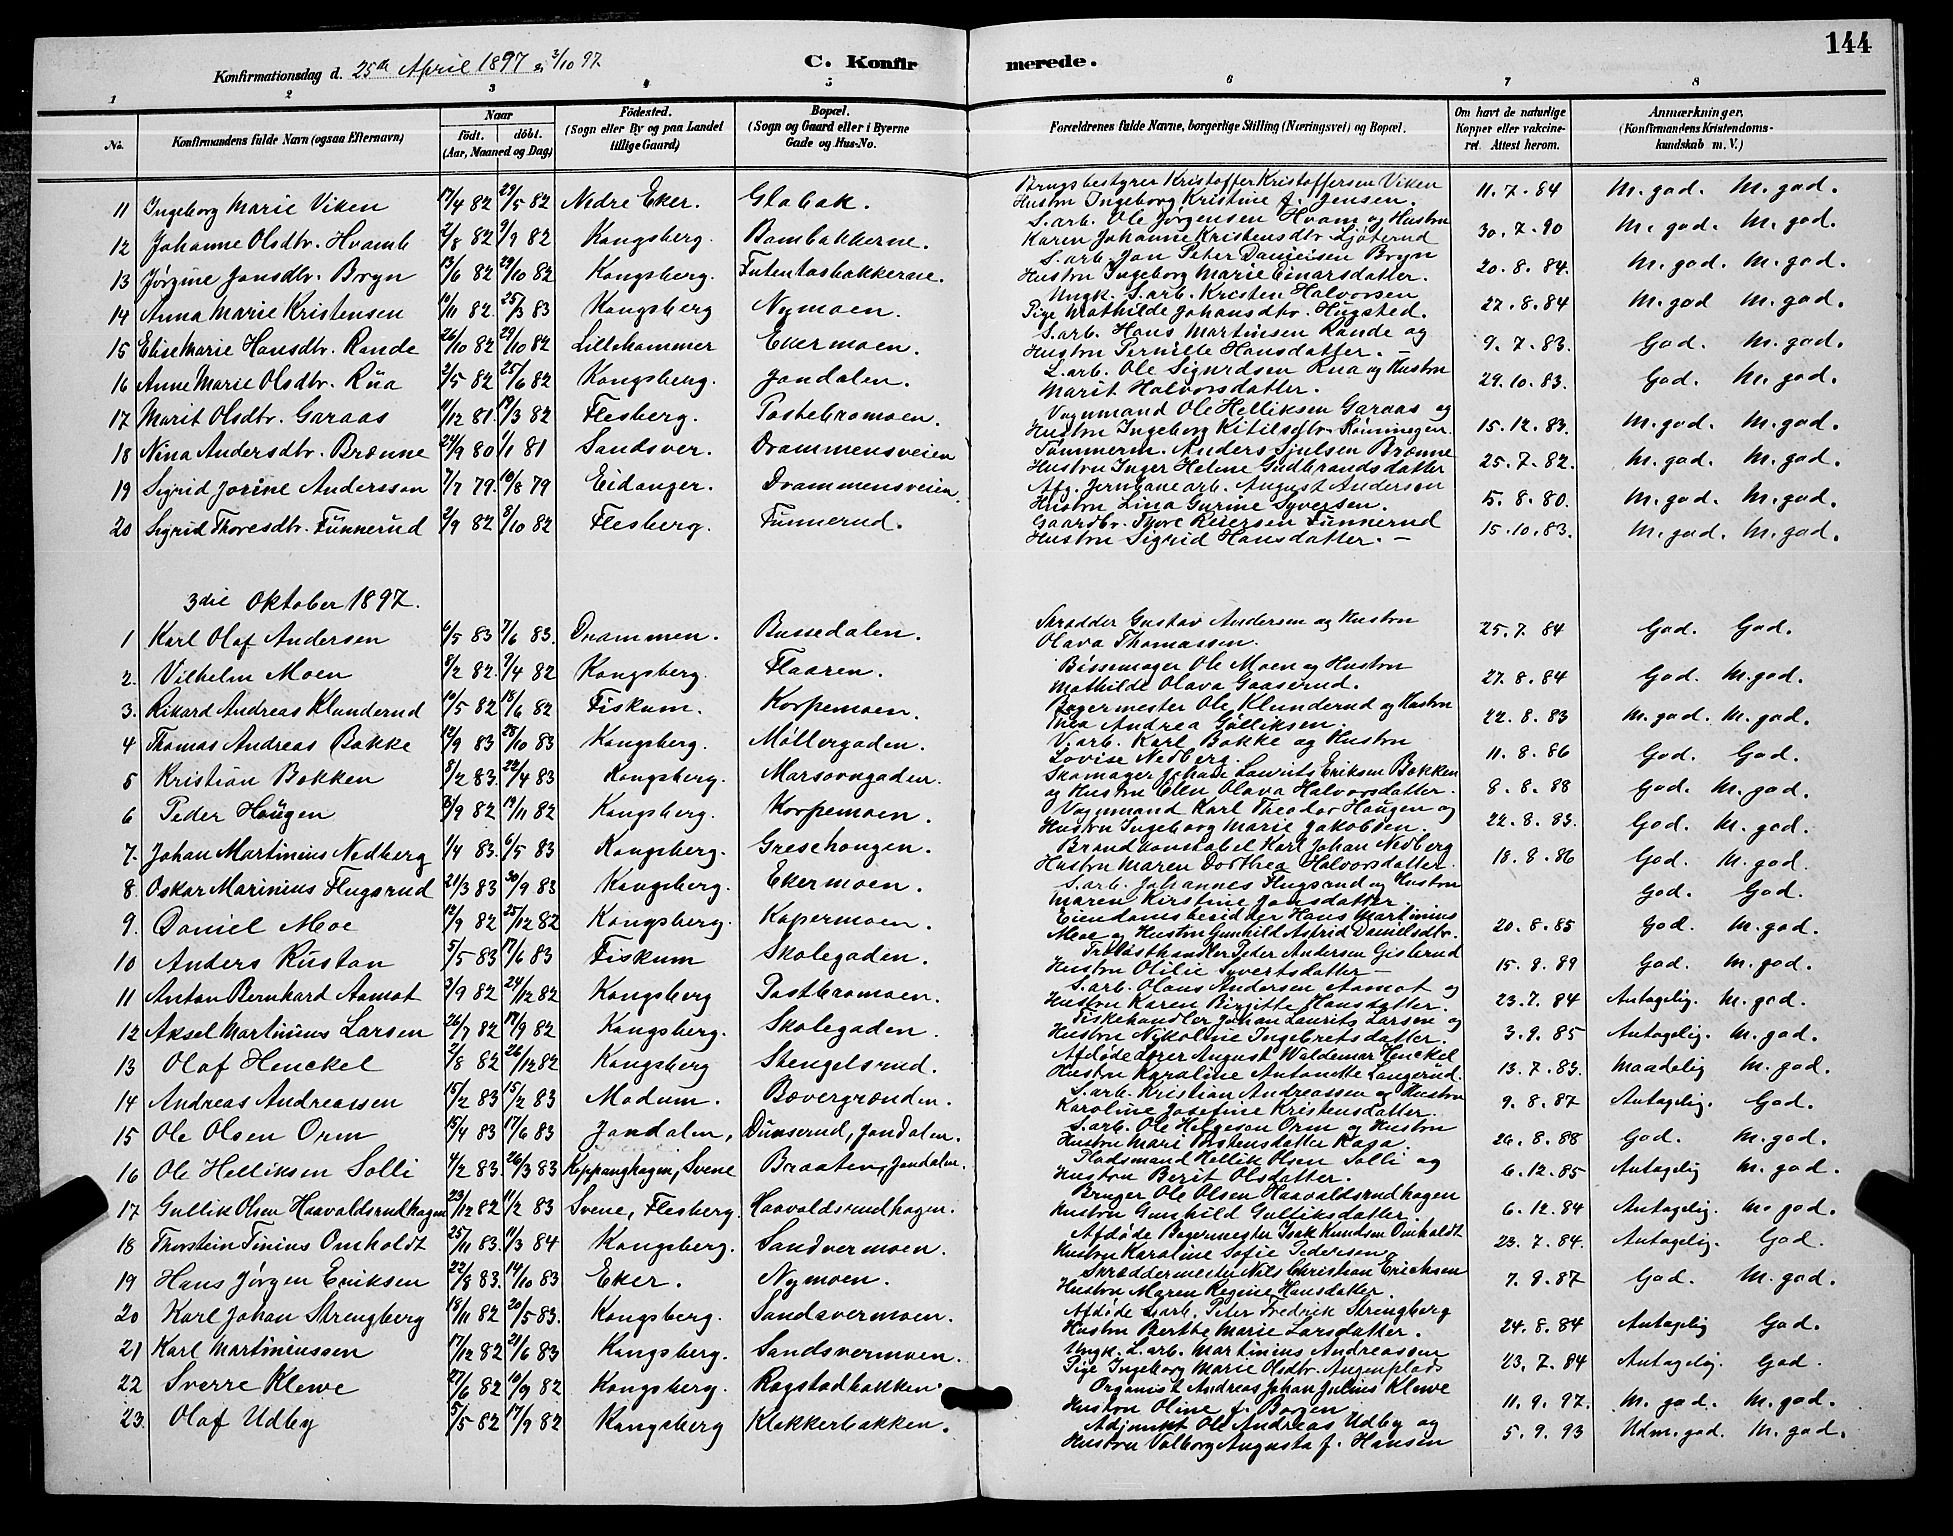 144
Konfirmationsdag d. 25th April 1897 & 3/10 97
C. Konfirmerede.
1 2 3 4 5 6 7 8
No.
Konfirmandens fulde Navn (ogsaa Efternavn)
Naar
födt. döbt.
(Aar, Maaned og Dag)
Födested.
(Sogn eller By og paa Landet
tillige Gaard)
Bopæl.
(Sogn og Gaard eller i Byerne
Gade og Hus-No.
Forældrenes fulde Navne, borgerlige Stilling (Næringsvei) og Bopæl.
Om havt de naturlige
Kopper eller vakcine-
ret. Attest herom.
Anmærkninger.
(Konfirmandens Kristendoms-
kundskab m. V.)
11 Ingeborg Marie Viken 17/4 82 29/5 82 Nedre Eker. Glabak. Brugsbestyrer Kristoffer Kristoffersen Viken
Hustru Ingeborg Kristine f. Jensen. 11.7.84 M.god. M.god.
12 Johanne Olsdtr. Hvamb 2/8 82 9/9 82 Kongsberg. Bambakkerne. S.arb. Ole Jørgensen Hvam og Hustru
Karen Johanne Kristensdtr. Ljøterud 30.7.90 M.god. M.god.
13 Jørgine Jansdtr. Bryn 13/6 82 29/10 82 Kongsberg. Futentasbakkerne. S.arb. Jan Peter Danielsen Bryn
Hustru Ingeborg Marie Einarsdatter. 20.8.84. M.god. M.god.
14 Anna Marie Kristensen 10/11 82. 25/3 83 Kongsberg Nymoen. Ungk. S.arb. Kristen Halvorsen
Pige Mathilde Johansdtr. Hugsted. 27.8.84 M.god M.god.
15 Elise Marie Hansdtr. Rande 26/10 82 29/10 82 Lillehammer Ekermoen. S.arb. Hans Martinsen Rande og
Hustru Pernille Hansdatter. — 9.7.83. God. M.god.
16 Anne Marie Olsdtr. Rua 2/5 82 25/6 82 Kongsberg. Jondalen. L.arb. Ole Sigurdsen Rua og Hustru
Marit Halvorsdatter. 29.10.83. God. M.god.
17 Marit Olsdtr. Garaas 11/12 81. 19/3 82 Flesberg. Postebromoen. Vognmand Ole Helliksen Garaas og
Hustru Ingeborg Kitilsdtr. Rønningen. 15.12.83. M.god. M.god.
18 Nina Andersdtr. Brænne 24/9 80 1/1 81 Sandsver. Drammensveien Tømmerm. Anders Sjulsen Brænne
Hustru Inger Helene Gudbrandsdatter 25.7.82. M.god. M.god.
19 Sigrid Jorine Andersson 7/7 79. 10/8 79 Eidanger. Drammensveien. Afg. Jernbanearb. August Anderson
Hustru Lina Gurine Syversen. 5.8.80. M.god. M.god.
20 Sigrid Thoresdtr. Funnerud 2/9 82 8/10 82 Flesberg. Funnerud. Gaardbr. Thore Reiersen Funnerud
Hustru Sigrid Hansdatter. — 15.10.83. M.god. M.god.
3die Oktober 1897.
1 Karl Olaf Andersen 6/5 83 7/6 83. Drammen. Bussedalen. Skrædder Gustav Andersen og Hustru
Olava Thomassen. 25.7.84 God. God.
2. Vilhelm Moen 8/2 82. 9/4 82 Kongsberg. Flaaren. Bøssemager Ole Moen og Hustru
Mathilde Olava Gaaserud. 27.8.84 God. M.god.
3. Rikard Andreas Klunderud 10/5 82 18/6 82 Fiskum. Korpemoen. Bagermester Ole Klunderud og Hustru
Thea Andrea Gulliksen. 22.8.83 M.god M.god.
4 Thomas Andreas Bakke 12/9 83 28/10 83 Kongsberg. Møllergaden. V.arb. Karl Bakke og Hustru
Lovise Nedberg. 11.8.86 God. God.
5 Kristian Bakken 8/2 83. 22/4 83 Kongsberg. Marsovngaden. Skomager Johan Laurits Eriksen Bakken
og Hustru Elen Olava Halvorsdatter. 8.8.88 God. M.god.
6 Peder Haugen 3/9 82 19/11 82 Kongsberg. Korpemoen. Vognmand Karl Theodor Haugen og
Hustru Ingeborg Marie Jakobsen. 22.8.83. God. M.god.
7. Johan Martinius Nedberg 1/4 83. 6/5 83 Kongsberg. Greschougen. Brandkonstabel Karl Johan Nedberg
Hustru Maren Dorthea Halvorsdatter. 18.8.86 God. M.god.
8. Oskar Marinius Flugsrud 21/3 83 30/9 83 Kongsberg. Ekermoen. S.arb. Johannes Flugsrud og Hustru
Maren Kirstine Jansdatter God. God.
9. Daniel Moe 12/9 82 25/12 82 Kongsberg. Kapermoen. Eiendomsbesidder Hans Martinius
Moe og Hustru Gunhild Astrid Danielsdtr. 20.8.85 God. M.god.
10 Anders Rustan 5/5 83 17/6 83 Fiskum Skolegaden. Trelasthandler Peter Andersen Gislerud
Hustru Otilie Syvertsdatter — 15.9.89 God. M.god.
11 Anton Bernhard Aamot 3/9 82 24/12 82 Kongsberg Postbromoen. S.arb. Olaus Andersen Aamot og
Hustru Karen Birgitte Hansdatter. 23.7.84 Antagelig. M.god.
12 Aksel Martinius Larsen 26/7 82 17/9 82 Kongsberg. Skolegaden. Fiskehandler Johan Laurits Larsen og
Hustru Nikoline Ingebretsdatter. 3.9.85 Antagelig. M.god.
13 Olaf Henckel 2/8 82 26/12 82 Kongsberg Stengelsrud. Afdøde dører August Waldemar Henckel
Hustru Karoline Antonette Langerud. 13.7.83. Maadelig M.god.
14 Andreas Andreassen 15/2 83 15/2 83 Modum. Bævergrænden. S.arb. Kristian Andreassen og Hustru
Karoline Josefine Kristensdatter. 9.8.87 Antagelig. God.
15 Ole Olsen Orm 15/4 83 17/6 83 Jondalen, Dunserud, Jondalen. S.arb. Ole Helgesen Orm og Hustru
Hustru Mari Torstensdatter Kaga. 26.8.88 God. M.god.
16 Ole Helliksen Solli 4/2 83. 26/3 83 Koppanghagen, Svene Braaten, Jondalen. Pladsmand Hellik Olsen Solli og
Hustru Berit Olsdatter. 6.12.85 Antagelig M.god.
17 Gullik Olsen Haavaldsrudhagen 23/12 82 11/2 83 Svene, Flesberg. Haavaldsrudhagen. Bruger Ole Olsen Haavaldsrudhagen
Hustru Gunhild Gulliksdatter. 6.12.84 Antagelig. M.god.
18 Thorstein Tinius Omholdt 25/11 83. 11/3 84 Kongsberg. Sandvermoen. Afdøde Bagermester Isak Knudsen Omholdt
Hustru Karoline Sofie Pedersen. 23.7.84. Antagelig. God.
19 Hans Jørgen Eriksen 22/8 83. 14/10 83 Eker. Nymoen. Skræddermester Nils Christian Ericksen
Hustru Maren Regine Hansdatter. 7.9.87 God. M.god.
20 Karl Johan Strengberg 18/11 82 20/5 83. Kongsberg. Sandsvermoen. Afdøde S.arb. Peter Fredrik Strengberg
Hustru Berthe Marie Larsdatter. 24.8.84 Antagelig God.
21 Karl Martiniussen 17/12 82 21/6 83 Kongsberg. Sandsvermoen. Ungk. L.arb. Martinius Andreassen
Pige Ingeborg Marie Olsdtr. Augenplads 23.7.84 Antagelig. God.
22 Sverre Klewe 27/6 82 10/9 82 Kongsberg. Rogstadbakken. Organist Andreas Johan Julius Klewe
Hustru Oline f. Borgen 11.9.97. M.god. M.god.
23. Olaf Udby 5/5 82 17/9 82 Kongsberg Klokkerbakken. Adjunkt Ole Andreas Udby og
Hustru Valborg Augusta f. Hansen 5.9.93 Udm.god. M.god.